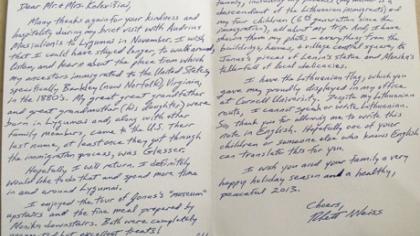 Dear Mr + Mrs Kalesiskai,
Many thanks again for your kindness and
hospitality during my brief visit with
to Lygumai in November. I wish
I could have stayed longer, to walk around
today and learn about the place from which
my ancestors immigrated to the United States,
specifically Berkley (now Norfolk), Virginia,
in the 1880's. My great great grandfather
and great grandmother (his daughter) were
born in Lygumai and, along with other
family members, came to the U.S. Their
last name, at least once they got through
the immigration process, was Glasser.
Hopefully I will return. I definitely
would like to do that and spend more time
in and around Lygumai.
I enjoyed the tour of Jonas's "museum"
upstairs and the fine meal prepared by
downstairs. Both were completely
excellent treats!
family, including my
descendant of the Lithuanian immigrants) and
my four children (6th generation since the
immigration), all about my trip. And I have
shown them my photos
buildings, homes, a village central square, to
Jonas's pieces of Lenin's statue and
of local delicacies.
I have the Lithuanian flag, which you
gave me proudly displayed in my office
at Cornell University. Despite my Lithuanian
roots, I cannot speak or write Lithuanian.
So thank you for allowing me to write this
note in English. Hopefully one of your
children or someone else who knows English
can translate this for you.
I wish you and your family a very
happy holiday season and a healthy,
peaceful 2013.
Cheers,
Weiss